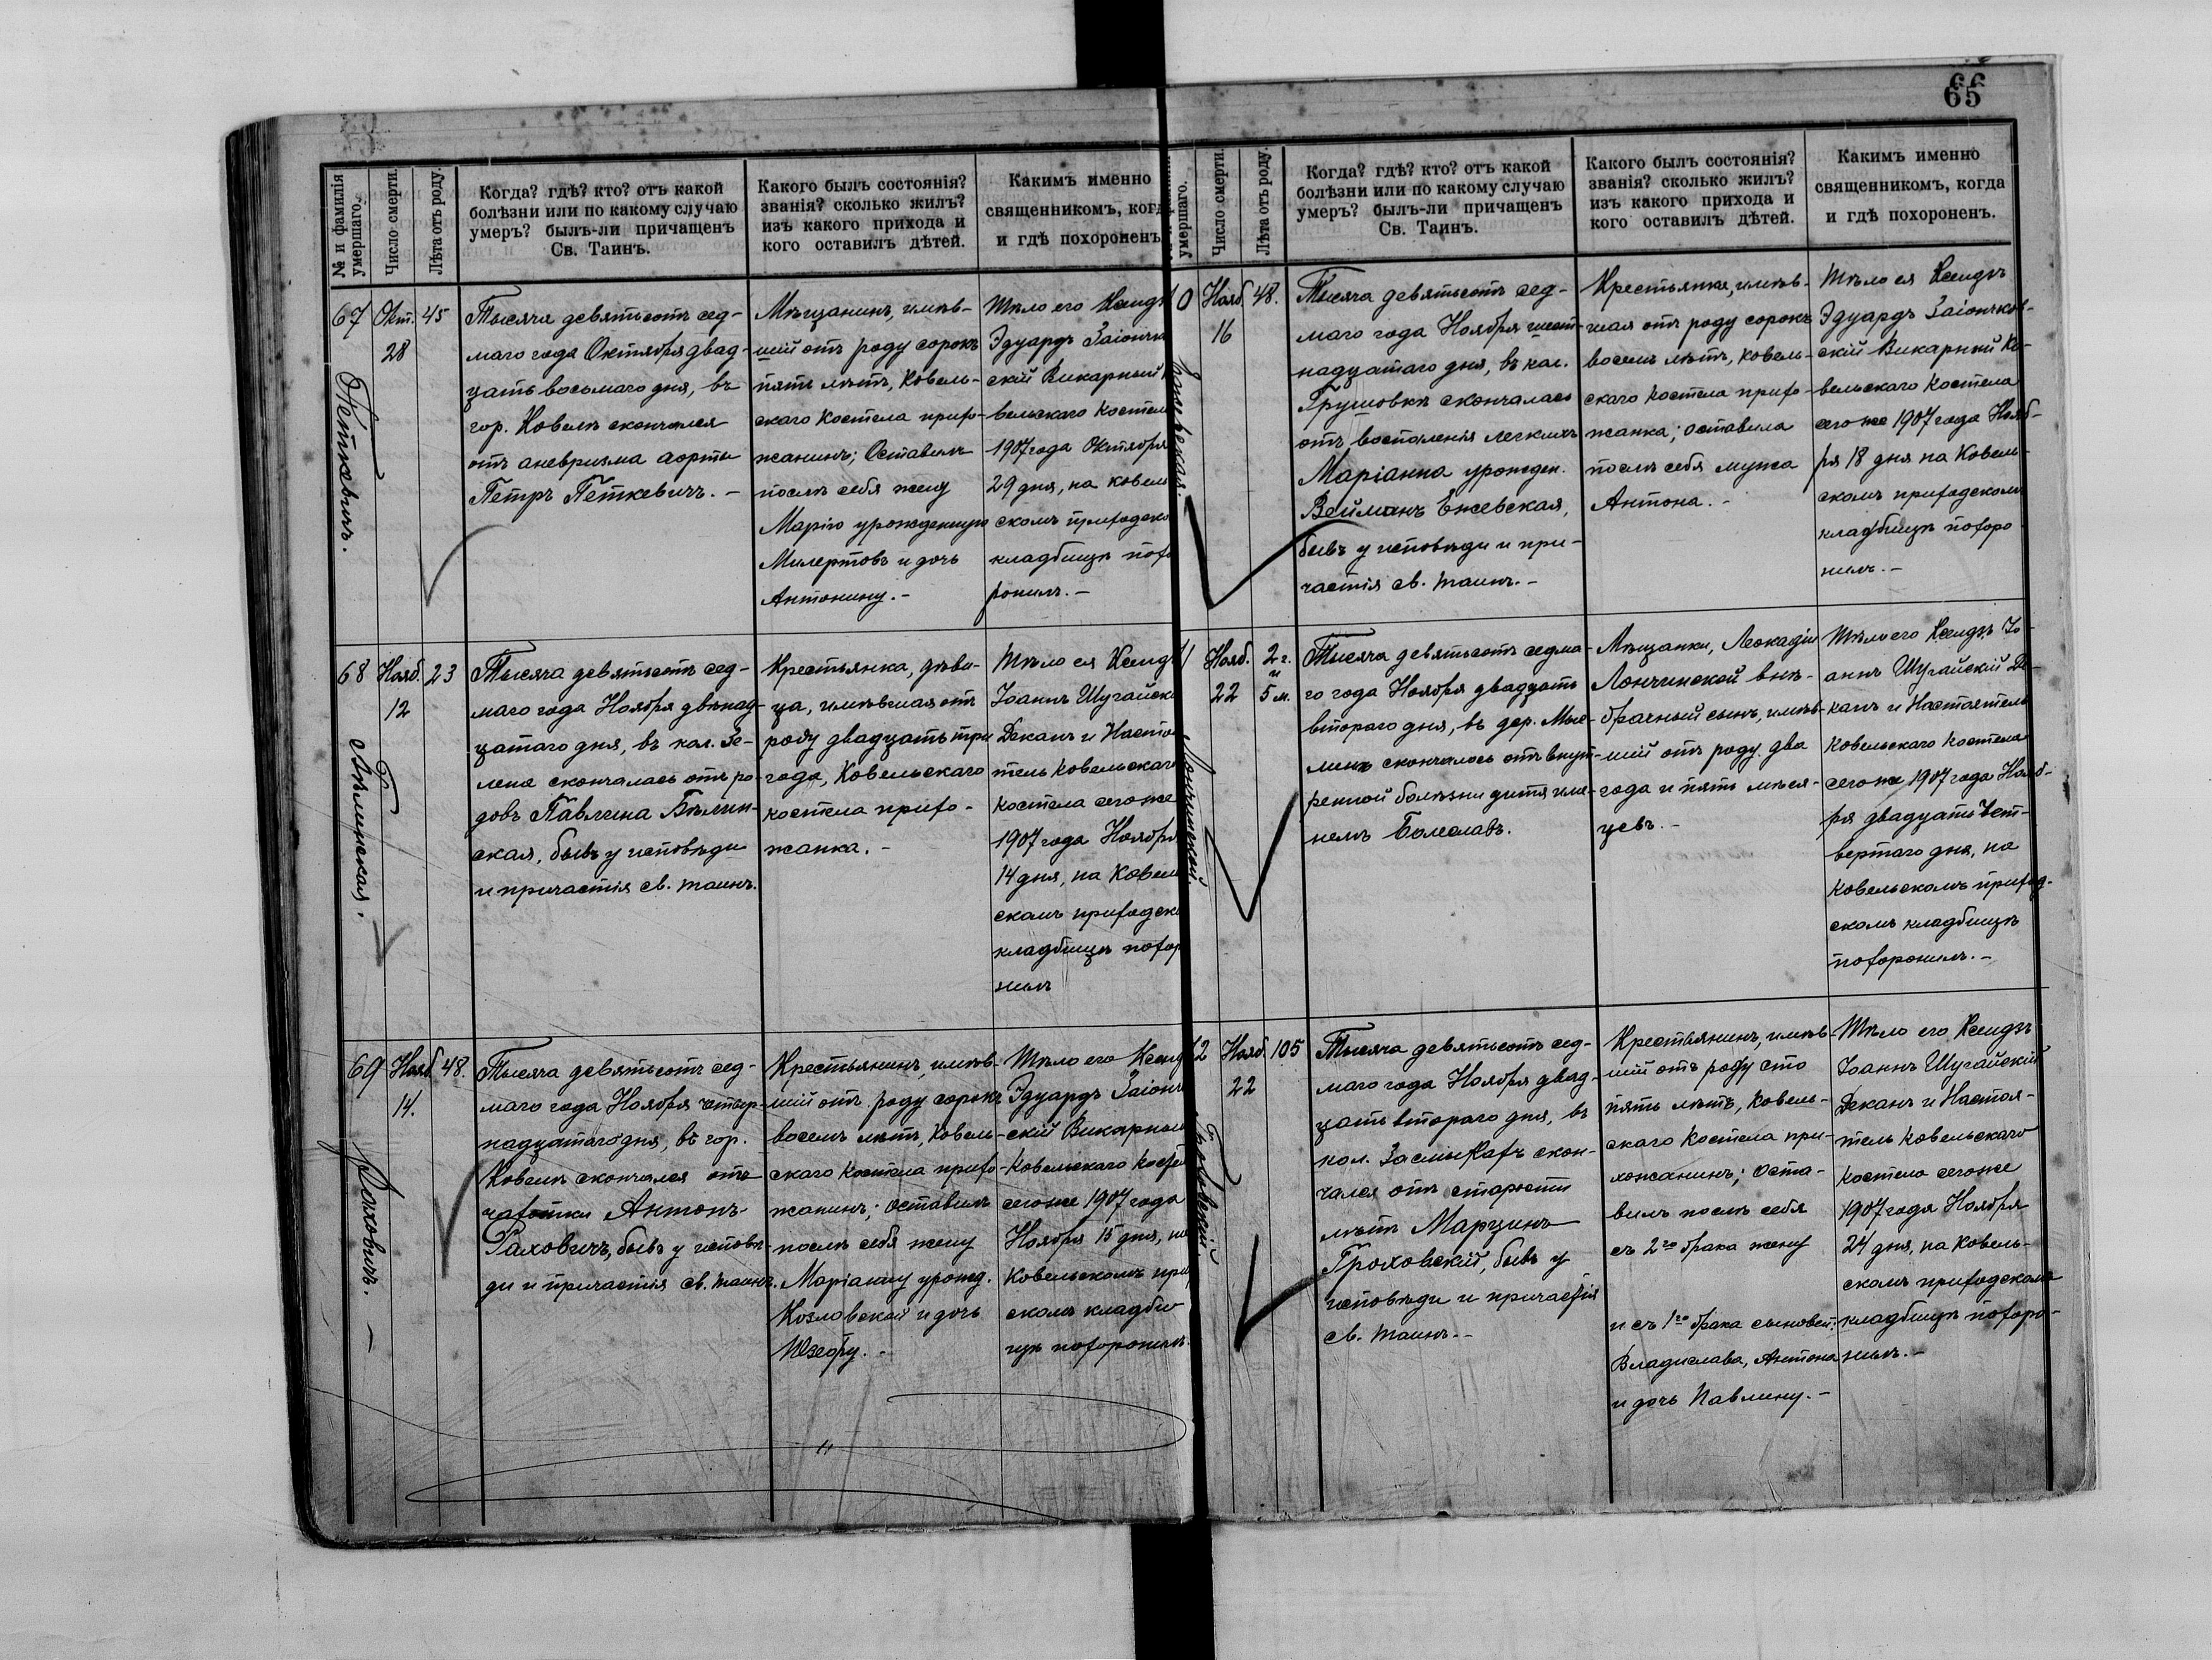 65
№ и фамилія
умершаго.
Число смерти.
Лѣта отъ роду.
Когда? гдѣ? кто? отъ какой
болѣзни или по какому случаю
умеръ? былъ-ли причащенъ
Св. Таинъ.
Какого былъ состоянія?
званія? сколько жилъ?
изъ какого прихода и
кого оставилъ дѣтей.
Какимъ именно
священникомъ, когд
и гдѣ похороненъ
67
Петкевичъ.
Окт.
28
45
Тысяча девятьсотъ сед-
маго года Октября двад-
цать восьмаго дня, въ
гор. Ковелѣ скончался
отъ аневризма аорты
Петръ Петкевичъ. -
Мѣщанинъ, имѣв-
шій отъ роду сорокъ
пять лѣтъ, Ковель-
скаго костела прихо-
жанинъ; Оставилъ
послѣ себя жену
Марію урожденную
и дочь
Антонину. -
Тѣло его Ксендз
Эдуардъ Заіончк
скій Викарный
вельскаго Костел
1907 года Октября
29 дня, на Ковел
скомъ приходско
кладбищѣ похо
ронилъ. -
68
Бѣлинская.
Нояб.
12
23
Тысяча девятьсотъ сед-
маго года Ноября двѣнад-
цатаго дня, въ кол. Зе-
лена скончалась отъ ро-
довъ Павлина Бѣлин-
ская, бывъ у исповѣди
и причастія св. таинъ.
Крестьянка, дѣви-
ца, имѣвшая отъ
роду двадцать три
года, Ковельскаго
костела прихо-
жанка. -
Тѣло ея Ксендз
Іоаннъ Шугайски
Деканъ и Настоя
тель Ковельскаго
костела сегоже
1907 года Ноября
14 дня, на Ковел
скомъ приходск
кладбищѣ похор
нилъ
69
Рахович. —
Нояб.
14.
48.
Тысяча девятьсотъ сед-
маго года Ноября четыр-
надцатаго дня, въ гор.
Ковелѣ скончался отъ
чахотки Антонъ
Раховичъ, бывъ у исповѣ-
ди и причастія св. таинъ.
Крестьянинъ, имѣв-
шій отъ роду сорокъ
восемь лѣтъ, Ковель-
скаго костела прихо-
жанинъ; оставилъ
послѣ себя жену
Маріанну урожд.
Козловской и дочь
Юзефу. -
Тѣло его Ксенд
Эдуардъ Заіонч
скій Викарный
Ковельскаго Косте
сегоже 1907 года
Ноября 15 дня, на
Ковельскомъ при
скомъ кладби
щѣ похоронилъ.
умершаго.
Число смерти.
Лѣта отъ роду.
Когда? гдѣ? кто? отъ какой
болѣзни или по какому случаю
умеръ? былъ-ли причащенъ
Св. Таинъ.
Какого былъ состоянія?
званія? сколько жилъ?
изъ какого прихода и
кого оставилъ дѣтей.
Какимъ именно
священникомъ, когда
и гдѣ похороненъ.
0
Нояб.
16
48.
Тысяча девятьсотъ сед-
маго года Ноября шест-
надцатаго дня, въ кол.
Грушовкѣ скончалась
отъ воспаленія легкихъ
Маріанна урожден.
Вейманъ Ежевская,
бывъ у исповѣди и при-
частія св. таинъ. -
Крестьянка, имѣв-
шая отъ роду сорокъ
восемь лѣтъ, Ковель-
скаго костела прихо-
жанка; оставила
послѣ себя мужа
Антона. -
Тѣло ея Ксендзъ
Эдуардъ Заіончков-
скій Викарный Ко-
вельскаго Костела
сегоже 1907 года Нояб-
ря 18 дня на Ковель-
скомъ приходскомъ
кладбищѣ похоро
нилъ. -
1
Лончинской
Нояб.
22
2 г.
и
5 м.
Тысяча девятьсотъ седма-
го года Ноября двадцать
втораго дня, въ дер.
скончалось отъ внут-
ренной болѣзни дитя име-
немъ Болеславъ.
Мѣщанки, Леокадіи
Лончинской внѣ-
брачный сынъ, имѣв-
шій отъ роду два
года и пять мѣся-
цевъ. -
Тѣло его Ксендзъ Іо-
аннъ Шугайскій Де-
канъ и Настоятель
Ковельскаго костела
сегоже 1907 года Нояб-
ря двадцать чет-
вертаго дня, на
Ковельскомъ приход-
скомъ кладбищѣ
похоронилъ. -
2
Гроховскій
Нояб.
22
105
Тысяча девятьсотъ сед-
маго года Ноября двад-
цать втораго дня, въ
кол. скон-
чался отъ старости
лѣтъ Марцинъ
Гроховскій, бывъ у
исповѣди и причастія
св. таинъ. -
Крестьянинъ, имѣв-
шій отъ роду сто
пять лѣтъ, Ковель-
скаго костела при-
хожанинъ; оста-
вилъ послѣ себя
съ 2го брака жену
и съ 1го брака сыновей:
Владислава, Антона
и дочь Павлину. -
Тѣло его Ксендзъ
Іоаннъ Шугайскій
Деканъ и Настоя-
тель Ковельскаго
костела сегоже
1907 года Ноября
24 дня, на Ковель-
скомъ приходскомъ
кладбищѣ похоро-
нилъ. -